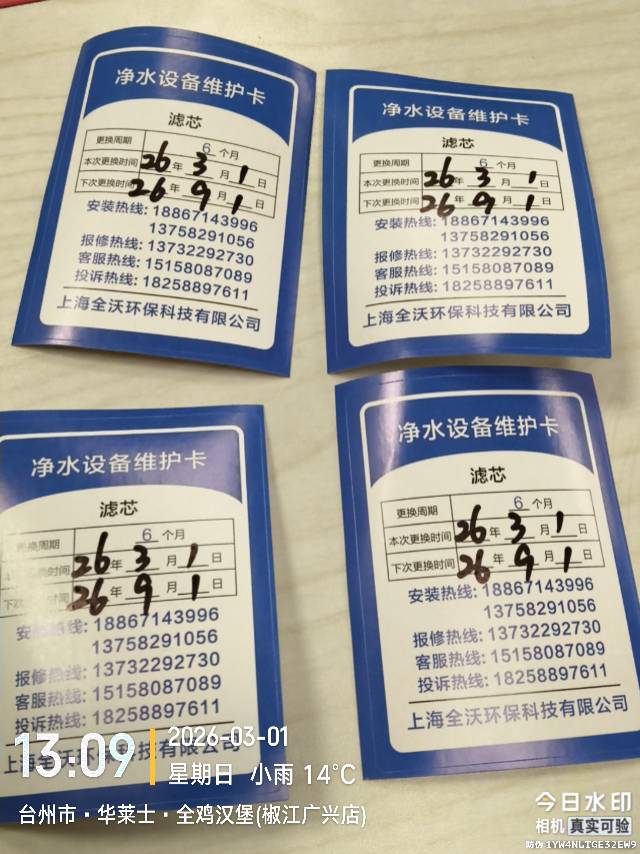 净水设备维护卡
滤芯
更换周期 6 个月
本次更换时间 26 年 3 月 1 日
下次更换时间 26 年 9 月 1 日
安装热线: 18867143996
13758291056
报修热线: 13732292730
客服热线: 15158087089
投诉热线: 18258897611
上海全沃环保科技有限公司
净水设备维护卡
滤芯
更换周期 6 个月
本次更换时间 26 年 3 月 1 日
下次更换时间 26 年 9 月 1 日
安装热线: 18867143996
13758291056
报修热线: 13732292730
客服热线: 15158087089
投诉热线: 18258897611
上海全沃环保科技有限公司
净水设备维护卡
滤芯
更换周期 6 个月
更换时间 26 年 3 月 1 日
下次更换时间 26 年 9 月 1 日
安装热线: 18867143996
13758291056
报修热线: 13732292730
客服热线: 15158087089
投诉热线: 18258897611
上海全沃环保科技有限公司
净水设备维护卡
滤芯
更换周期 6 个月
本次更换时间 26 年 3 月 1 日
下次更换时间 26 年 9 月 1 日
安装热线: 18867143996
13758291056
报修热线: 13732292730
客服热线: 15158087089
投诉热线: 18258897611
上海全沃环保科技有限公司
13:09
2026-03-01
星期日 小雨 14°C
台州市·华莱士·全鸡汉堡(椒江广兴店)
今日水印
相机 真实可验
防伪 1YW4NLTGE32EW9